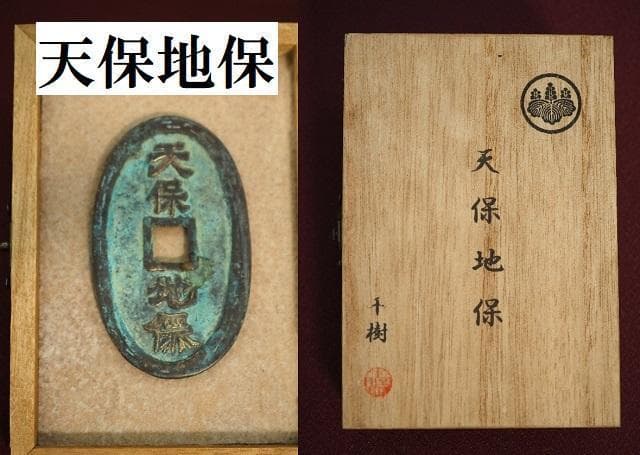 天保地保
天保
地保
天保地保
千樹